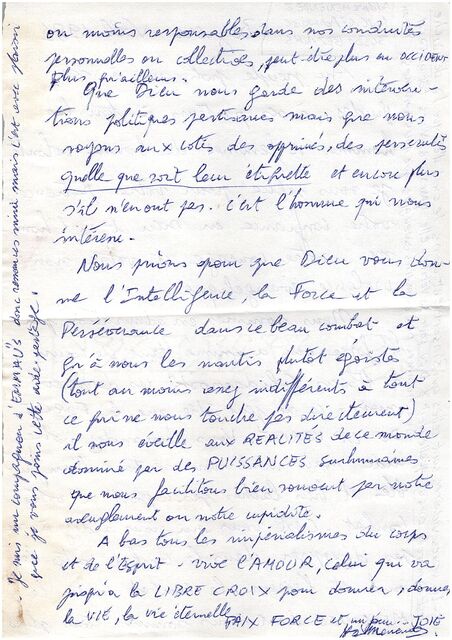 ou moins responsables dans nos conduites
personnelles ou collectives, peut-être plus en OCCIDENT
plus qu'ailleurs.
Que Dieu nous garde des interven-
tions politiques partisanes mais que nous
soyons aux cotés des opprimés, des persecutés
quelle que soit leur étiquette et encore plus
s'il n'en ont pas. c'est l'homme qui nous
intéresse.
Nous prions pour que Dieu vous don-
ne l'Intelligence, la Force et la
Perséverance dans ce beau combat et
qu'à nous les nantis plutôt égoistes
(tout au moins assez indifférents à tout
ce qui ne nous touche pas directement)
il nous éveille aux REALITÉS de ce monde
dominé par des PUISSANCES surhumaines
que nous facilitons bien souvent par notre
aveuglement ou notre cupidité.
A bas tous les impérialismes du corps
et de l'Esprit - vive l'AMOUR, celui qui va
jusqu'a la LIBRE CROIX pour donner, donner
la VIE, la vie éternelle.
PAIX FORCE et un peu JOIE
Je suis un compagnon d'EMMAÜS donc ressources mini mais c'est avec plaisir
que je vous joins cette aide-partage.